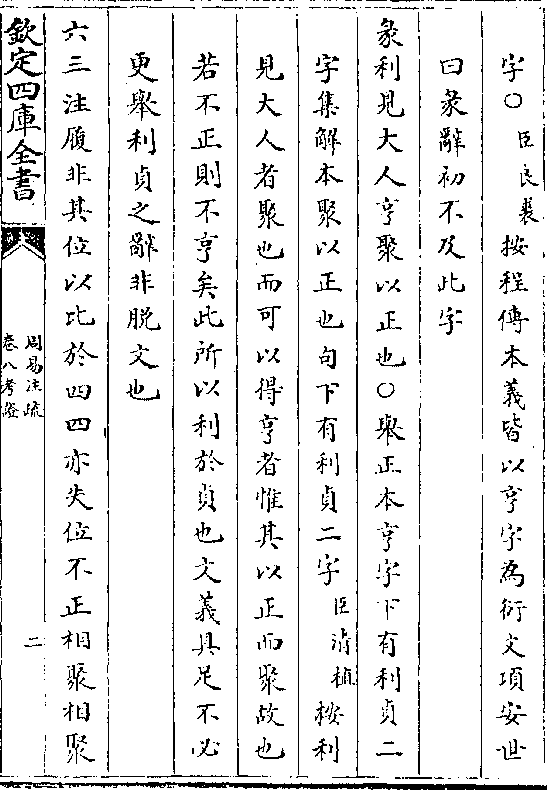 字○臣良裘按程傳本義皆以亨字為衍文項安世
曰彖辭初不及此字
彖利見大人亨聚以正也○舉正本亨字下有利貞二
字集解本聚以正也句下有利貞二字臣浩植按利
見大人者聚也而可以得亨者惟其以正而聚故也
若不正則不亨矣此所以利於貞也文義具足不必
更舉利貞之辭非脱文也
六三注履非其位以比於四四亦失位不正相聚相聚
欽定四庫全書
周易注疏
卷八考證
二